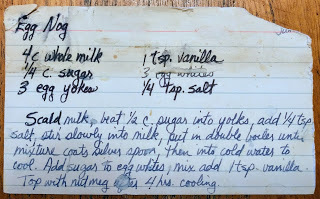 Egg Nog
4 c whole milk 1 tsp. vanilla
1/4 c. sugar 3 egg whites
3 egg yokes 1/4 tsp. salt
Scald milk, beat 1/2 c. sugar into yolks, add 1/4 tsp.
salt, stir slowly into milk, put in double boiler until
mixture coats silver spoon, then into cold water to
cool. Add sugar to egg whites, mix add 1 tsp. vanilla.
Top with nutmeg after 4 hrs. cooling.